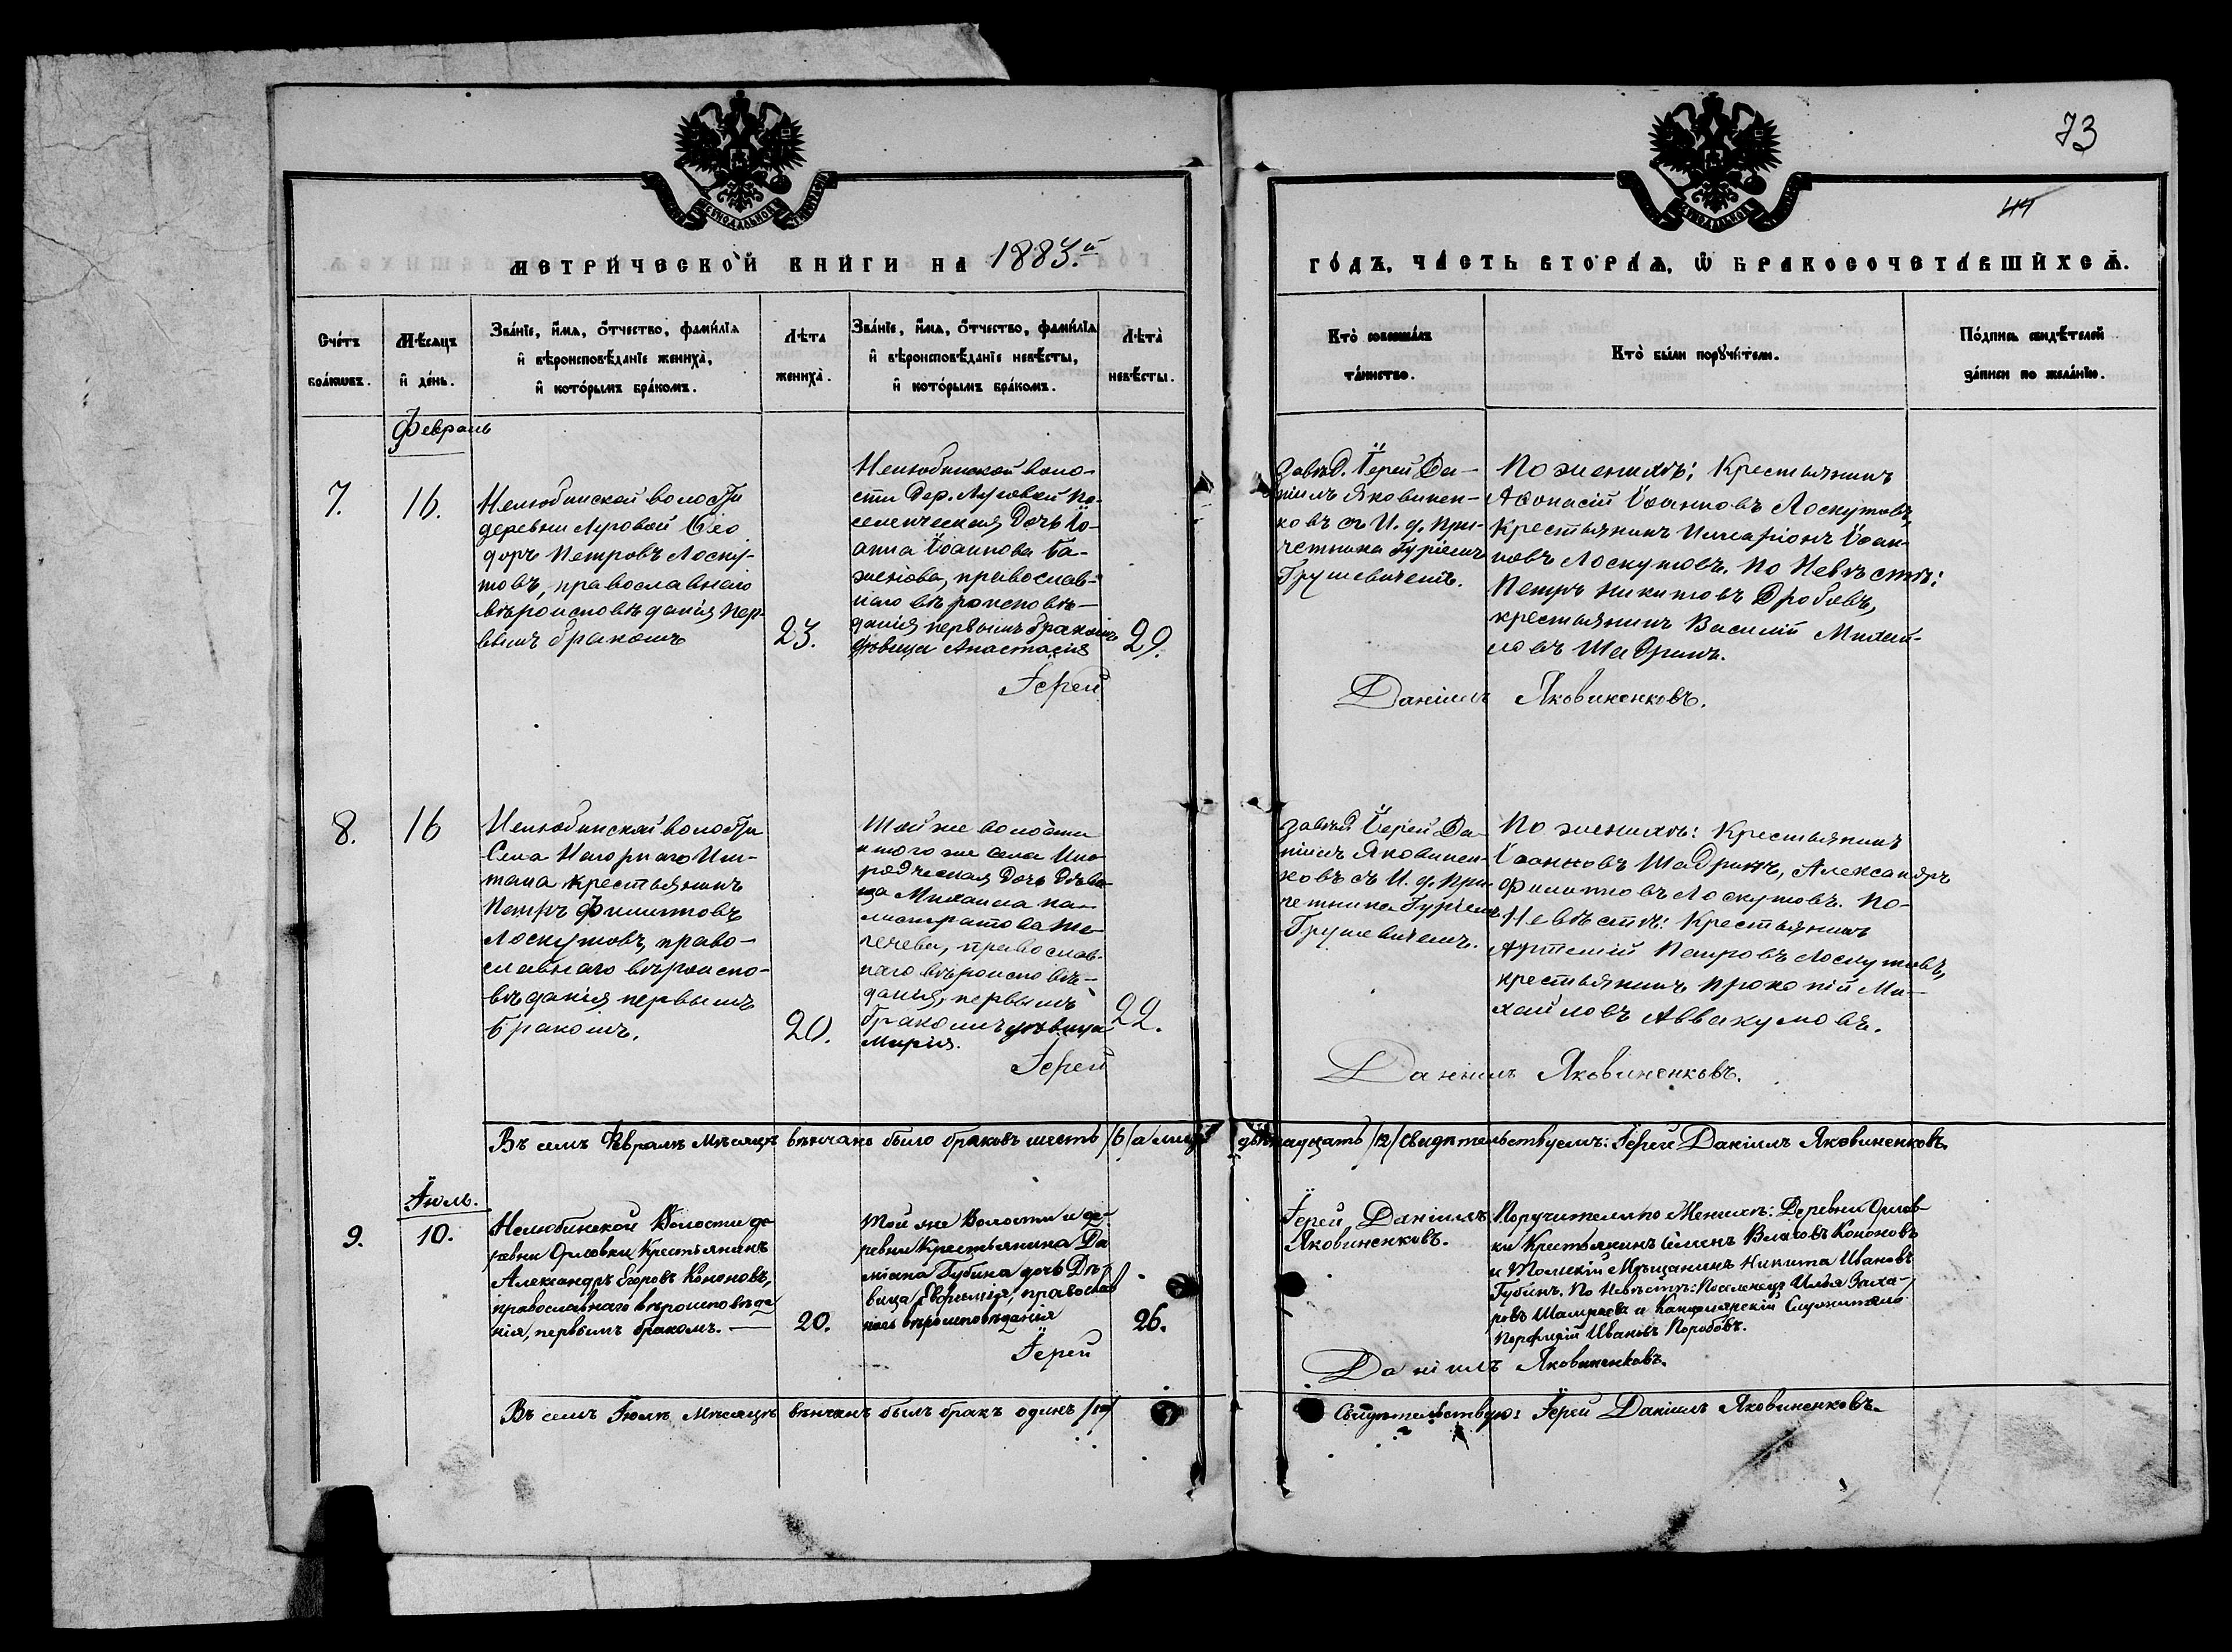 73
44
МЕТРИЧЕСКОЙ КНИГИ НА 1883.й
ГОДЪ, ЧАСТЬ ВТОРАЯ, Ѡ БРАКОСОЧЕТАВШИХСЯ.
Счетъ
браковъ.
Мѣсяцъ
и день.
Званіе, имя, отчество, фамилія
и вѣроисповѣданіе жениха,
и которымъ бракомъ.
Лѣта
жениха.
Званіе, имя, отчество, фамилія
и вѣроисповѣданіе невѣсты,
и которымъ бракомъ.
Лѣта
невѣсты.
Кто совершалъ
таинство.
Кто были поручители.
Подпись свидѣтелей
записи по желанію.
Февраль
7.
16.
Нелюбинской волости
деревни Луговой Ѳео
доръ Петровъ Лоску-
товъ, православнаго
вѣроисповѣданія пер-
вымъ бракомъ
23.
Нелюбинской воло-
сти Дер. Луговой По-
селенческая Дочь Іо-
анна Іоаннова Ба-
женова, православ-
наго вѣроисповѣ-
данія первымъ бракомъ
дѣвица Анастасія
29.
Іерей
Завѣд. Іерей Да-
ніилъ Яковинен-
ковъ съ И. д. при-
четника Гуріемъ
Грушевичемъ.
По женихѣ: Крестьянинъ
Аѳонасій Іоанновъ Лоскутовъ,
Крестьянинъ Илларіонъ Іоан-
новъ Лоскутовъ. По Невѣстѣ:
Петръ Никитовъ Дробовъ,
крестьянинъ Василій Михай-
ловъ Шадринъ.
Даніилъ Яковиненковъ.
8.
16
Нелюбинской волости
Села Нагорнаго Иш-
тана крестьянинъ
Петръ Филиповъ
Лоскутовъ, право-
славнаго вѣроиспо-
вѣданія первымъ
бракомъ.
20.
Той же волости
и того же села Ино-
родческая Дочь Дѣви-
ца Михаила Ка-
листратова
православ-
наго вѣроисповѣ-
данія, первымъ
бракомъ дѣвица
Марія.
22.
Іерей
завѣд Іерей Да-
ніилъ Яковинен-
ковъ съ И. д. при-
четника Гуріемъ
Грушевичемъ.
По женихѣ: Крестьянинъ
Іоанновъ Шадринъ, Александръ
Филиповъ Лоскутовъ. По-
Невѣстѣ: Крестьянинъ
Артемій Петровъ Лоскутовъ,
крестьянинъ Прокопій Ми-
хайловъ Аввакумовъ.
Даніилъ Яковиненковъ.
Въ семъ Февралѣ Мѣсяцѣ вѣнчано было браковъ шесть /6/ а лицъ двѣнадцать /12/ Свидѣтельствуемъ: Іерей Даніилъ Яковиненковъ.
Іюль.
9.
10.
Нелюбинской Волости де
ревни Орловки Крестьянинъ
Александръ Егоровъ Кононовъ,
православнаго вѣроисповѣда
нія, первымъ бракомъ.
20.
Той же Волости и де-
ревни Крестьянина Да
міана Губина дочь Дѣ-
вица Евфимія, православ
наго вѣроисповѣданія
26.
Іерей
Іерей Даніилъ
Яковиненковъ.
Поручители по Женихѣ: Деревни Орлов-
ки Крестьянинъ Семенъ Власовъ Кононовъ
и Томскій Мѣщанинъ Никита Ивановъ
Губинъ. По Невѣстѣ: Поселенецъ Илья Заха-
ровъ и Канцелярскій Служитель
Порфирій Ивановъ Коробовъ.
Даніилъ Яковиненковъ.
Въ семъ Іюлѣ Мѣсяцѣ вѣнчанъ былъ бракъ одинъ /1/ Свидѣтельствую: Іерей Даніилъ Яковиненковъ.